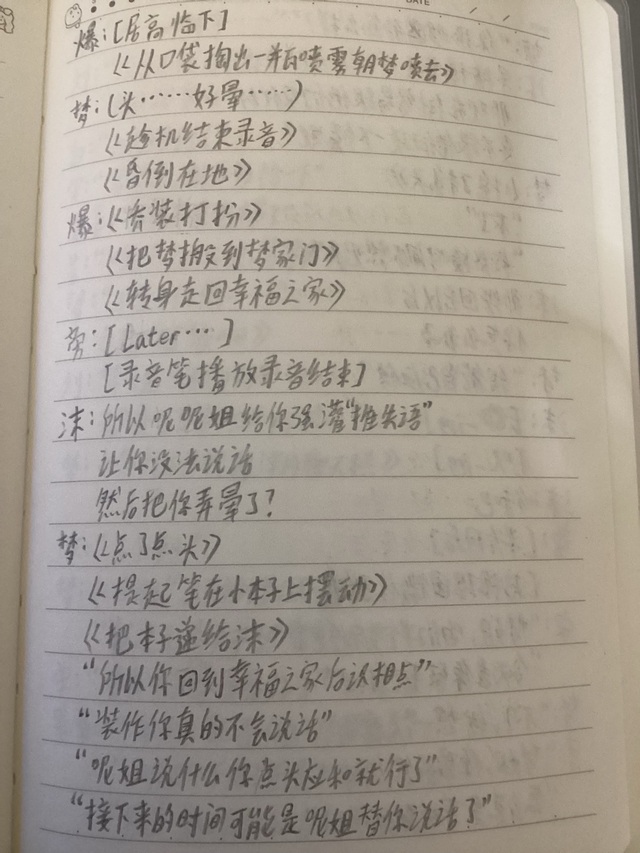 DATE
爆:[居高临下]
《从口袋掏出一并瓦喷雾朝梦喷去》
梦:(头……好晕……)
《趁机结束录音》
《昏倒在地》
爆:《乔装打扮》
《把梦搬到梦家门》
《转身走回幸福之家》
旁:[Later…]
[录音笔播放录音结束]
沫:所以呢呢姐给你强灌"推失语"
让你没法说话
然后把你弄晕了?
梦:《点了点头》
《提起笔在小本子上摆动》
《把本子递给沫》
"所以你回到幸福之家后识相点"
"装作你真的不会说话"
"呢姐说什么你点头应和就行了"
"接下来的时间可能是呢姐替你说话了"